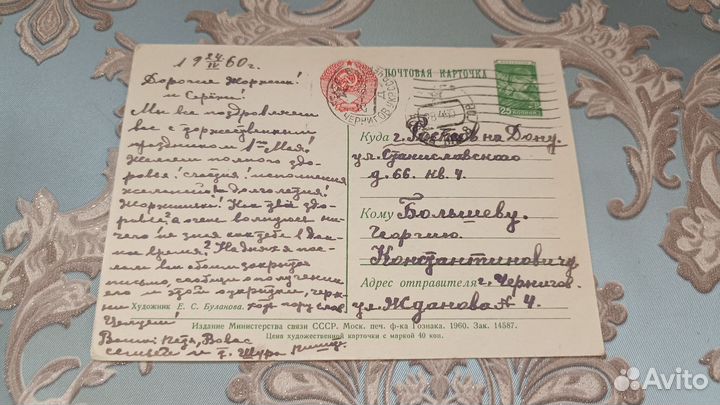 19 24/IV 60 г.
Дорогие Жоржик!
и Серёжа!
Мы все поздравляем
вас с торжественным
праздником 1го Мая!
Желаем полного здо-
ровья! счастия! исполнения
желаний! долголетия!
Жоржик! Как твоё здо-
ровье? а очень волнуюсь ни-
чего не зная как тебе в дан-
ное время? На днях я пос-
лал вам обоим закрытое
письмо, сообщи о получении
его и этой открытки, черк-
ни хотя пару слов
Целуем!
Ваши: Петя, Вова с
семьёй и т. Шура
ПОЧТОВАЯ КАРТОЧКА
ЧЕРНИГОВ УКР.ССР
25 КОПЕЕК
Куда г. Ростов на Дону.
ул. Станиславского
д. 66. кв. 4.
Кому Большеву.
Георгию.
Константиновичу
Адрес отправителя г. Чернигов.
ул. Жданова № 4.
Художник Е. С. Буланова.
Издание Министерства связи СССР. Моск. печ. ф-ка Гознака. 1960. Зак. 14587.
Цена художественной карточки с маркой 40 коп.
Avito